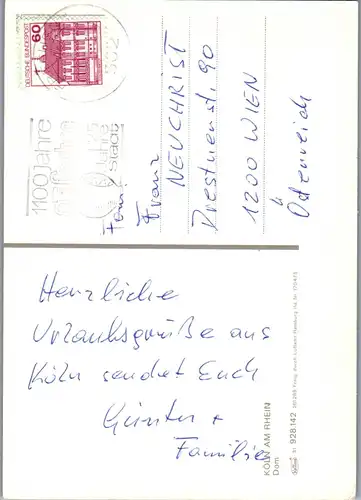 DEUTSCHE BUNDESPOST
60
1100 Jahre
Jahre
Stadt
Fam.
Franz
NEUCHRIST
Dresdnerstr. 90
1200 WIEN
Österreich
Herzliche
Urlaubsgrüße aus
Köln sendet Euch
Günter +
Familie
KÖLN AM RHEIN
Dom
928.142